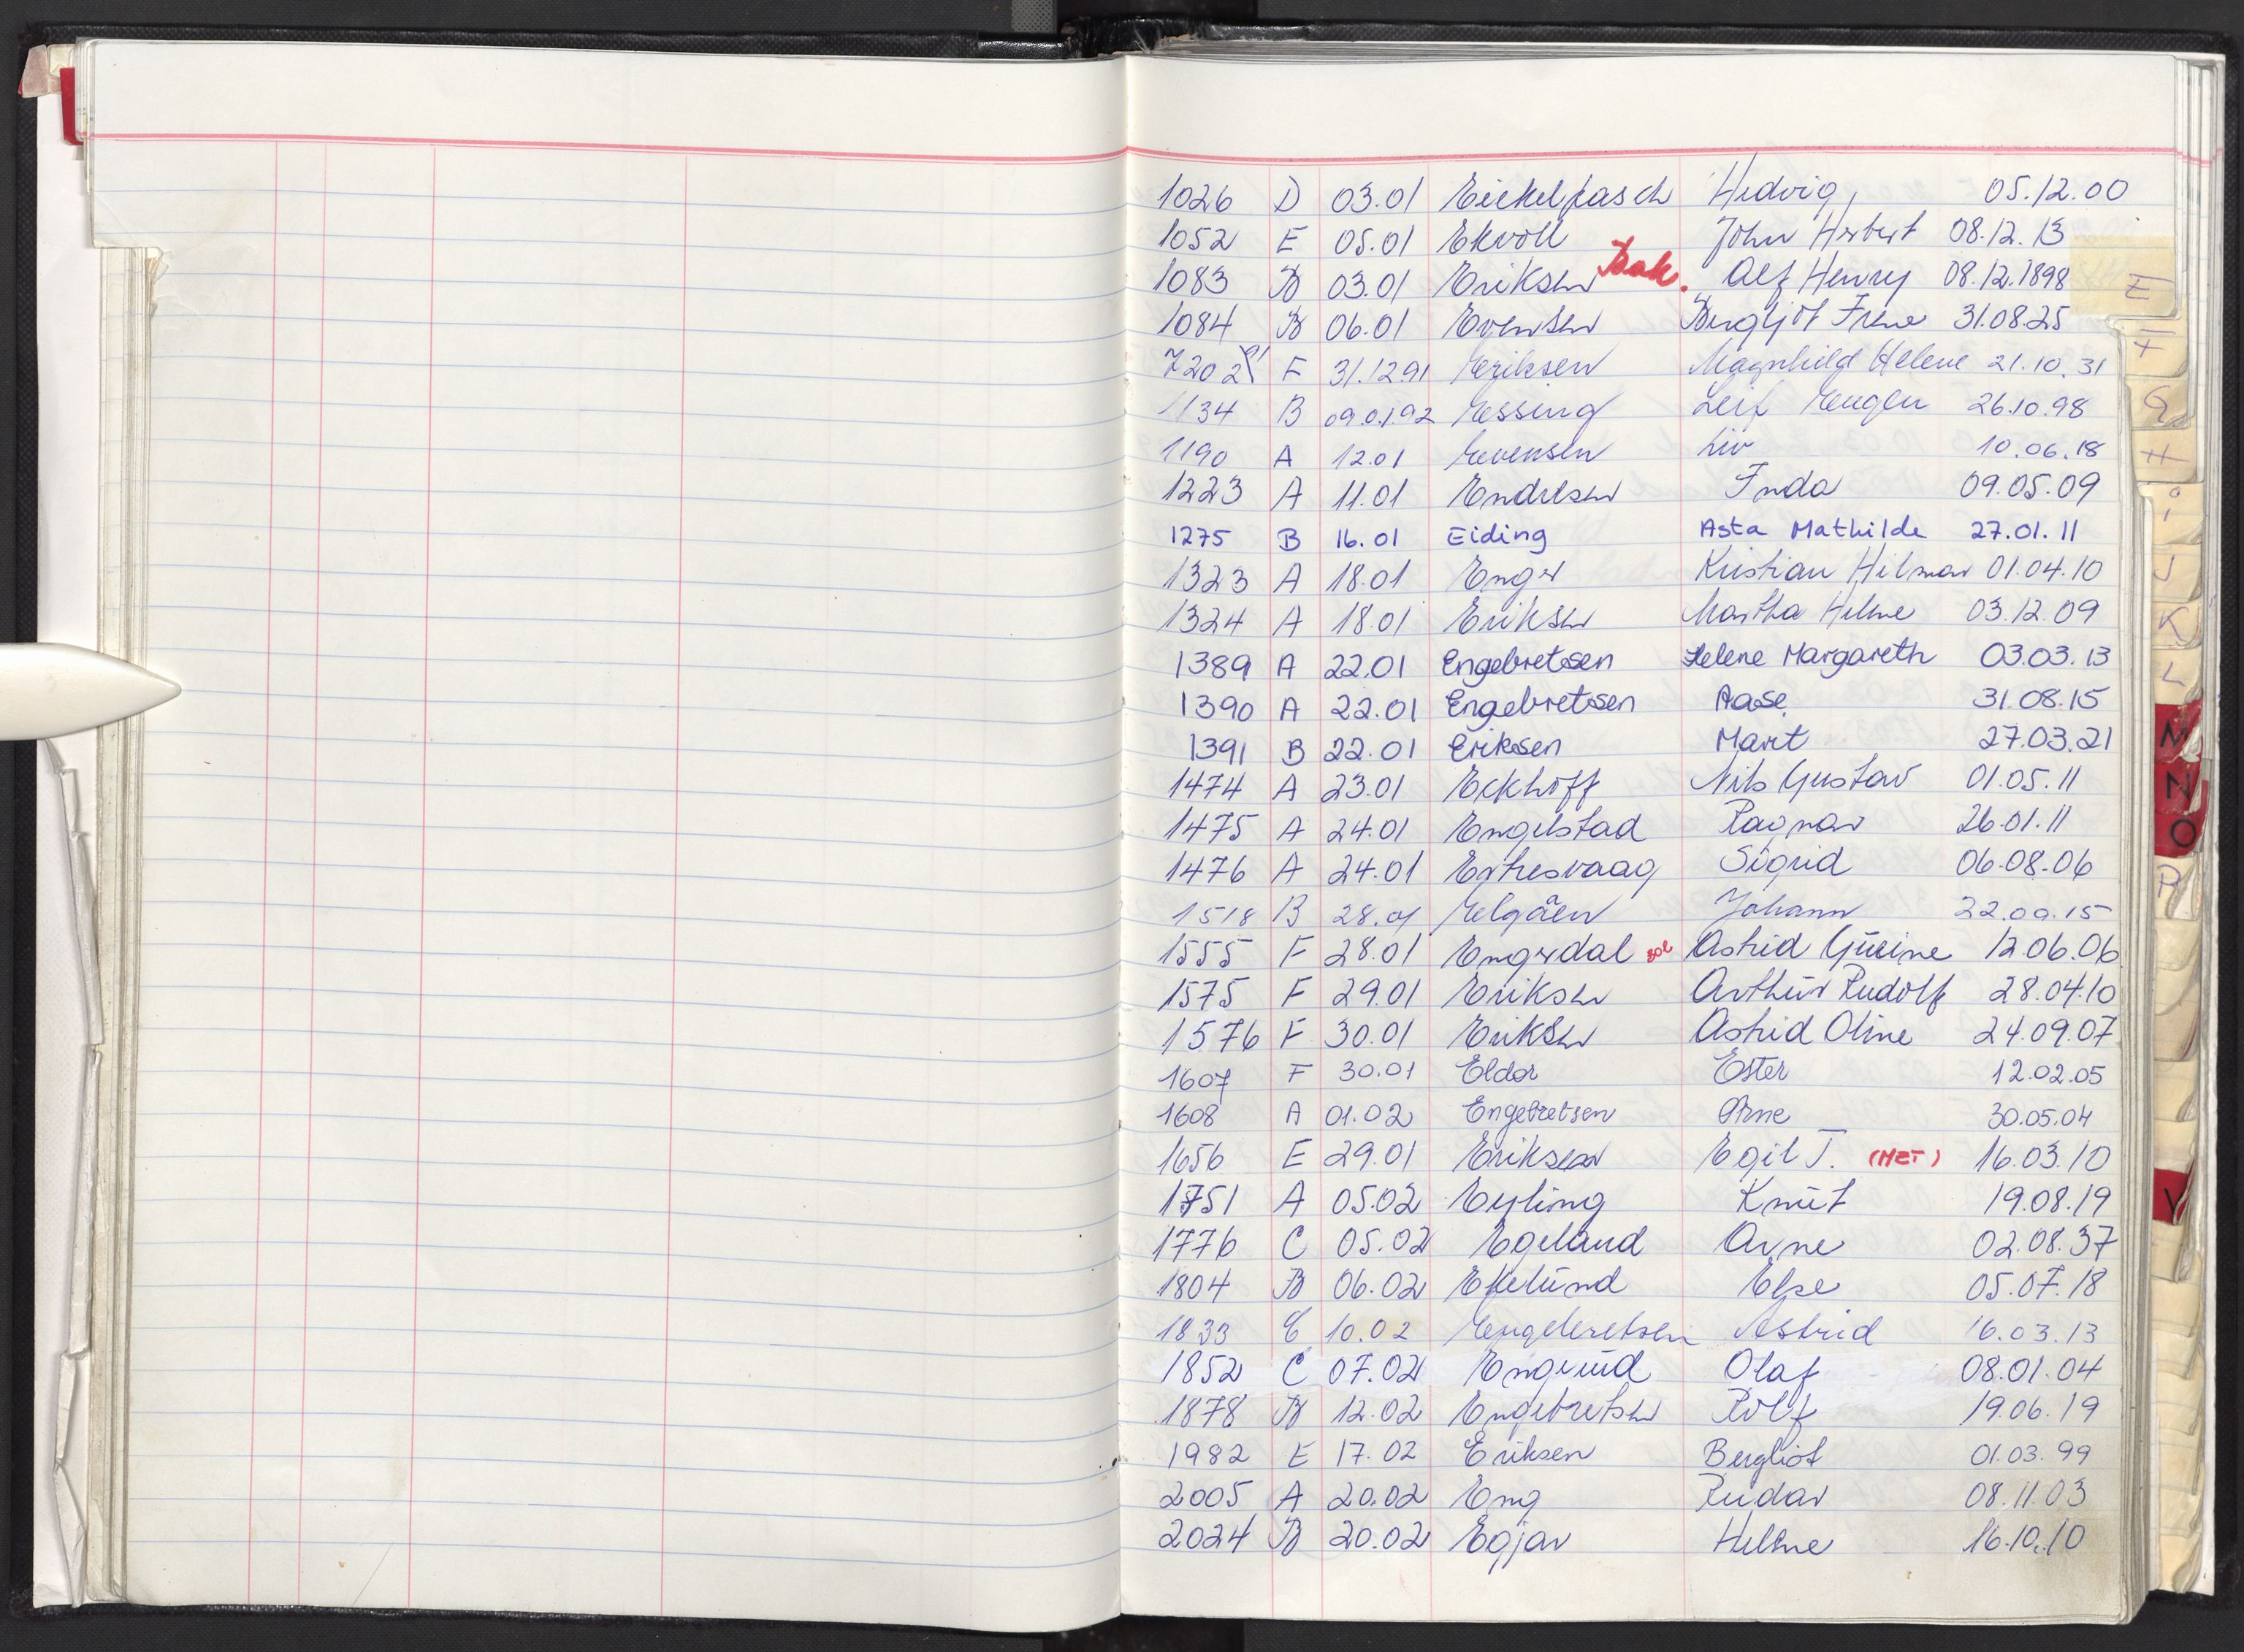 1026 D 03.01 Eickelpasch Hedvig 05.12.00
1052 E 05.01 Ekvoll John Herbert 08.12.13
1083 B 03.01 Eriksen Bak. Alf Henry 08.12.1898
1084 B 06.01 Evensen Bergljot Irene 31.08.25
7202 91 F 31.12.91 Eriksen Magnhild Helene 21.10.31
1134 B 09.01.92 Essing Leif Eugen 26.10.98
1190 A 12.01 Evensen Liv 10.06.18
1223 A 11.01 Endresen Inda 09.05.09
1275 B 16.01 Eiding Asta Mathilde 27.01.11
1323 A 18.01 Enger Kristian Hilmar 01.04.10
1324 A 18.01 Eriksen Martha Helene 03.12.09
1389 A 22.01 Engebretsen Helene Margareth 03.03.13
1390 A 22.01 Engebretsen Aase 31.08.15
1391 B 22.01 Eriksen Marit 27.03.21
1474 A 23.01 Eckhoff Nils Gustav 01.05.11
1475 A 24.01 Engelstad Ragnar 26.01.11
1476 A 24.01 Ertresvaag Sigrid 06.08.06
1518 B 28.01 Elgåen Johann 22.09.15
1555 F 28.01 Engerdal Astrid 12.06.06
1575 F 29.01 Eriksen Arthur Rudolf 28.04.10
1576 F 30.01 Eriksen Astrid Oline 24.09.07
1607 F 30.01 Eldor Ester 12.02.05
1608 A 01.02 Engebretsen Arne 30.05.04
1656 E 29.01 Eriksen Egil T. (MET) 16.03.10
1751 A 05.02 Eyling Knut 19.08.19
1776 C 05.02 Egeland Arne 02.08.37
1804 B 06.02 Ekelund Else 05.07.18
1833 C 10.02 Engebretsen Astrid 16.03.13
1852 C 07.02 Engerud Olaf 08.01.04
1878 B 12.02 Engebretsen Rolf 19.06.19
1982 E 17.02 Eriksen Bergliot 01.03.99
2005 A 20.02 Eng Reidar 08.11.03
2024 B 20.02 Egjar Helene 16.10.10
E
F
G
H
i
J
K
L
M
N
O
P
V